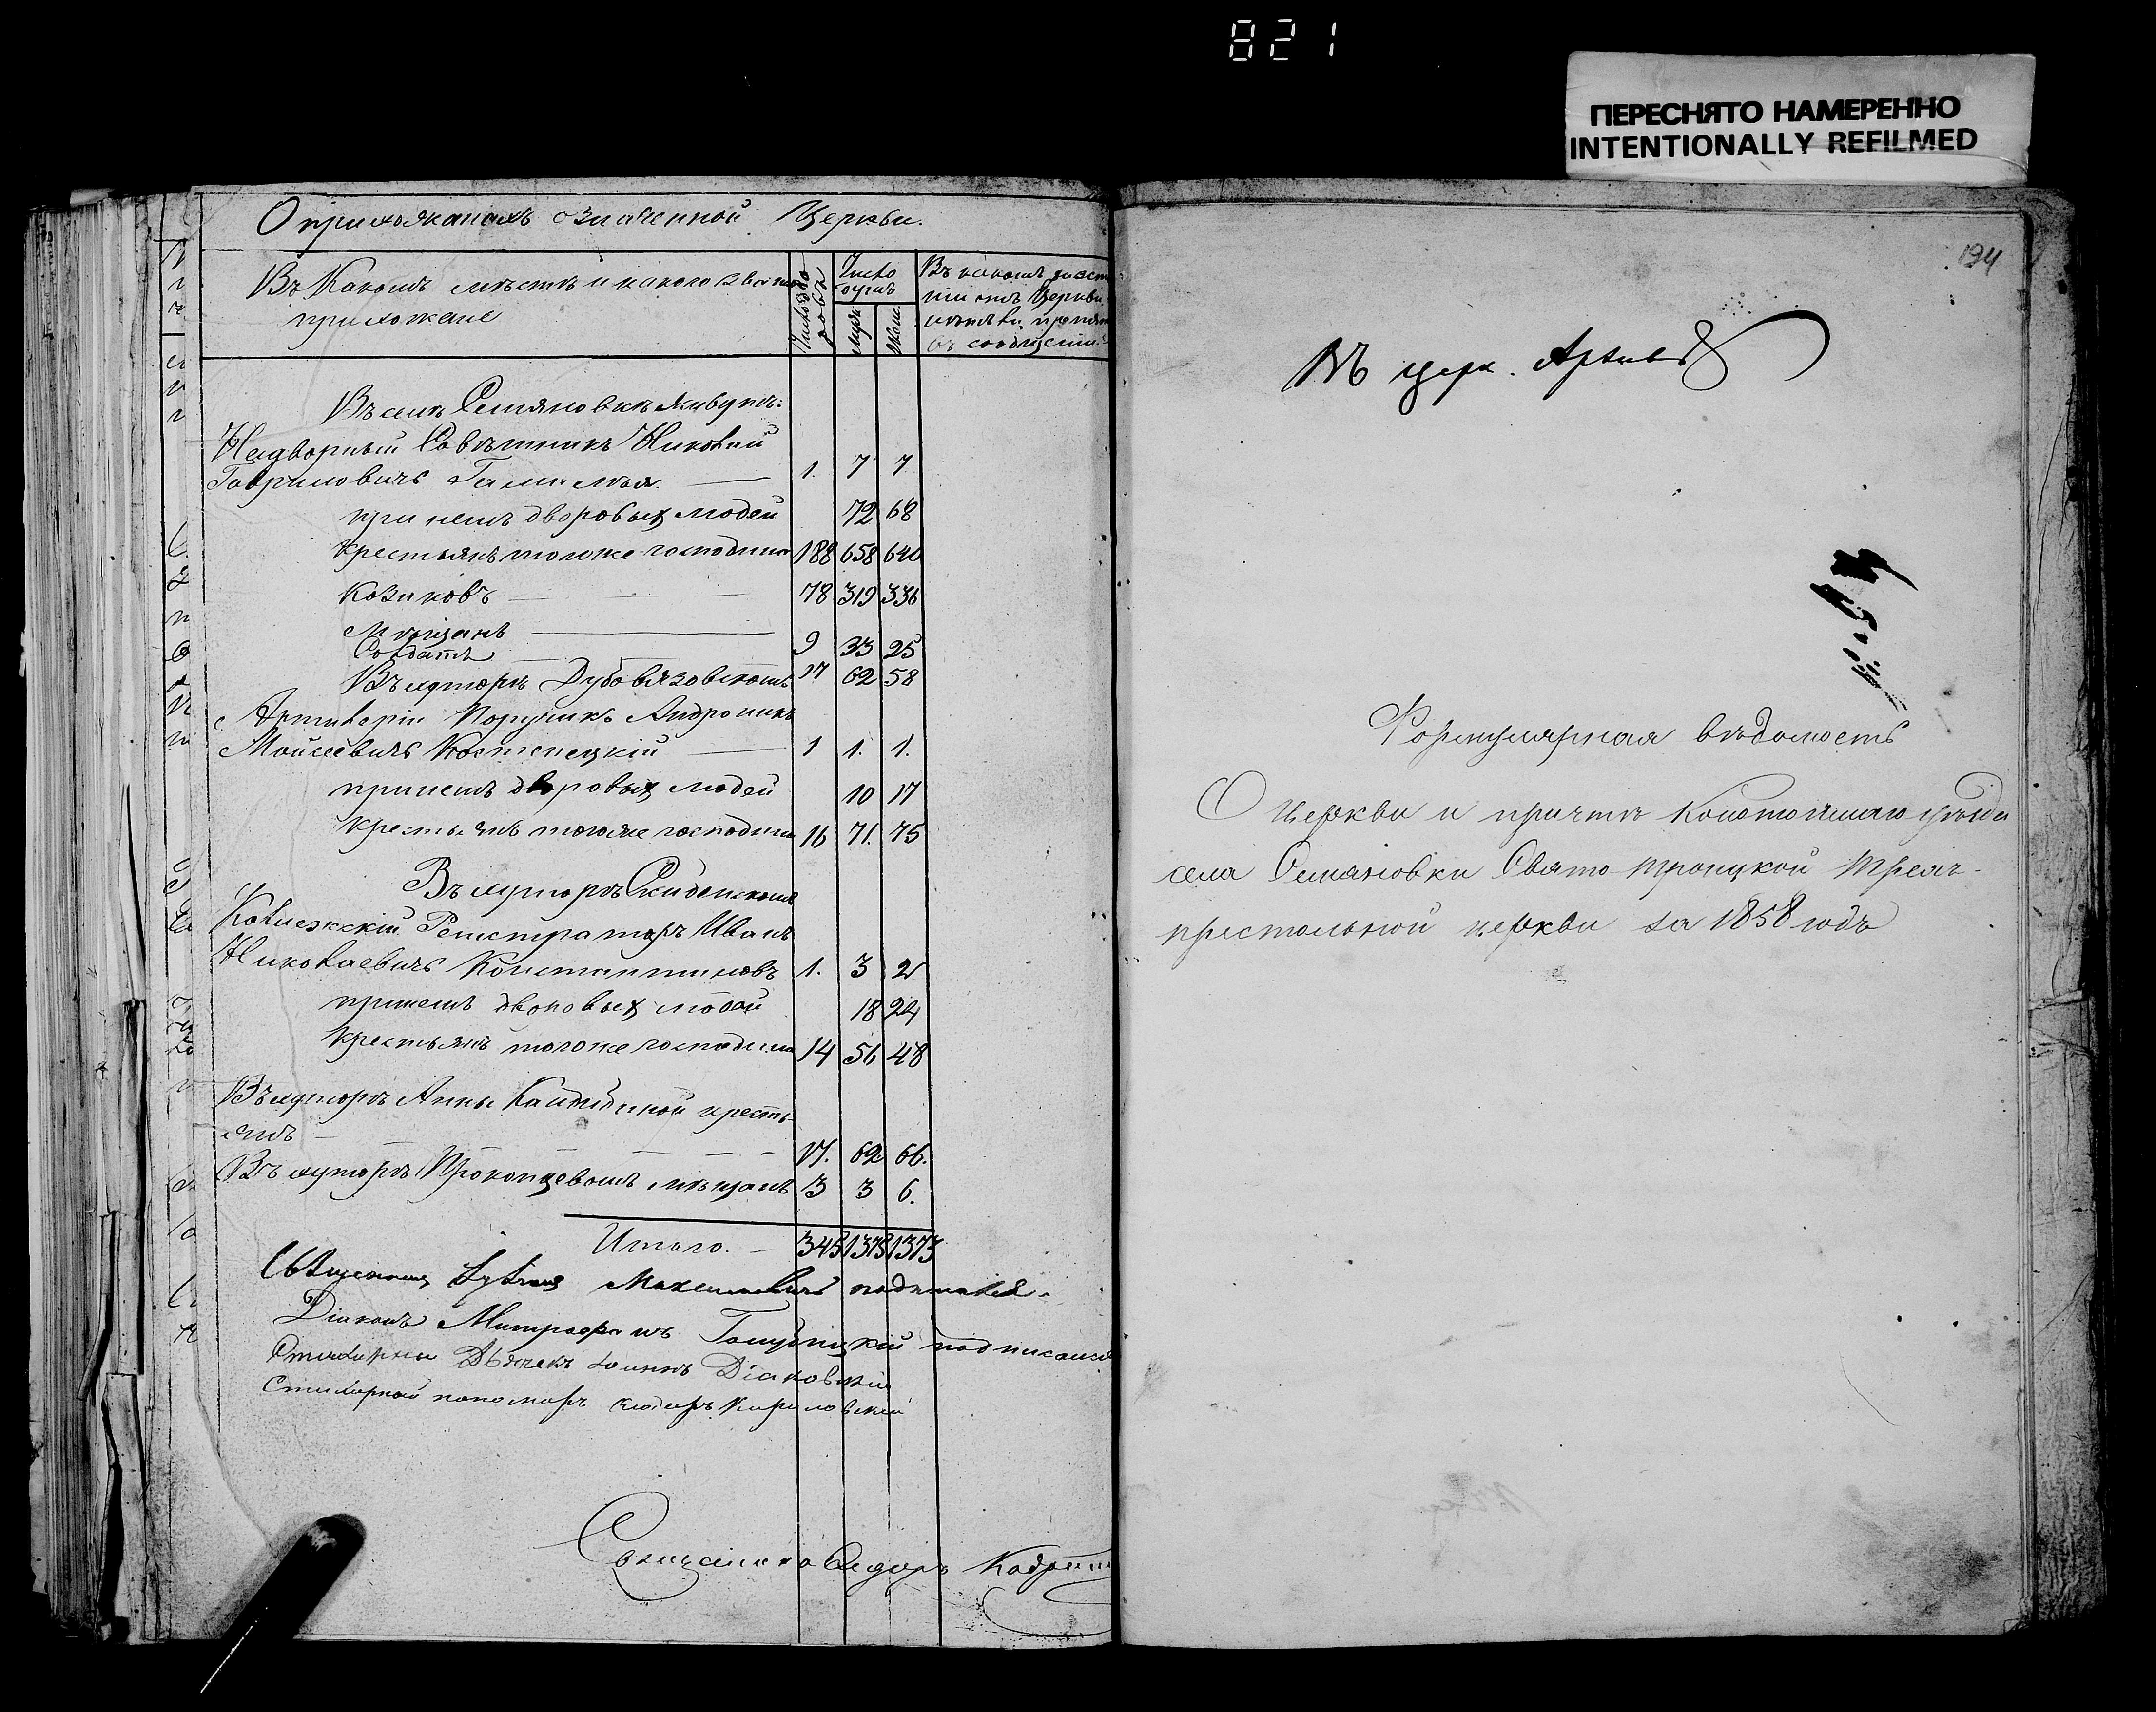 821
ПЕРЕСНЯТО НАМЕРЕННО
INTENTIONALLY REFILMED
О прихожанахъ означенной Церкви.
Въ Какомъ мѣстѣ и какого званія
прихожане
Число дво
ровъ
Число
душъ
муж.
жен.
Въ какомъ разсто
ніи отъ Церкви
и нѣтъ ли препят
въ сообщеніи
Въ селѣ Семяновкѣ живутъ:
Надворный Совѣтникъ Николай
Гавриловичъ Гамалѣя. 1. 7 7
при немъ дворовыхъ людей 72 68
крестьянъ тогоже господина 188 658 640
Козаковъ 78 319 336
Мѣщанъ
Солдатъ 9 33 25
Въ хуторѣ Дубовязовскомъ 17 62 58
Артилеріи Поручикъ Андроникъ
Мойсеевичъ Костенецкій 1 1. 1.
при немъ дворовыхъ людей 10 17
крестьянъ тогоже господина 16 71. 75
Въ хуторѣ Скиденскомъ
Колежскій Регистраторъ Иванъ
Николаевичъ Константиновъ 1. 3 2
при немъ дворовыхъ людей 18 24
крестьянъ тогоже господина 14 56 48
Въ хуторѣ Анны Кандибиной кресть-
янъ 17. 62 66.
Въ хуторѣ Прокопцевомъ мѣщанъ 3 3 6.
Итого. 345 1375 1373
Священникъ Максимовичъ подписался.
Діаконъ Митрофанъ Голубицкій подписался
Стихарный Дьячекъ Іоаннъ Діаковскій
Стихарной пономарь Кириловскій
194
Въ церк. Архивъ
Формулярная вѣдомость
О церкви и причтѣ Конотопскаго уѣзда
села Семяновки Свято-Троицкой трехъ-
престольной церкви за 1858 годъ